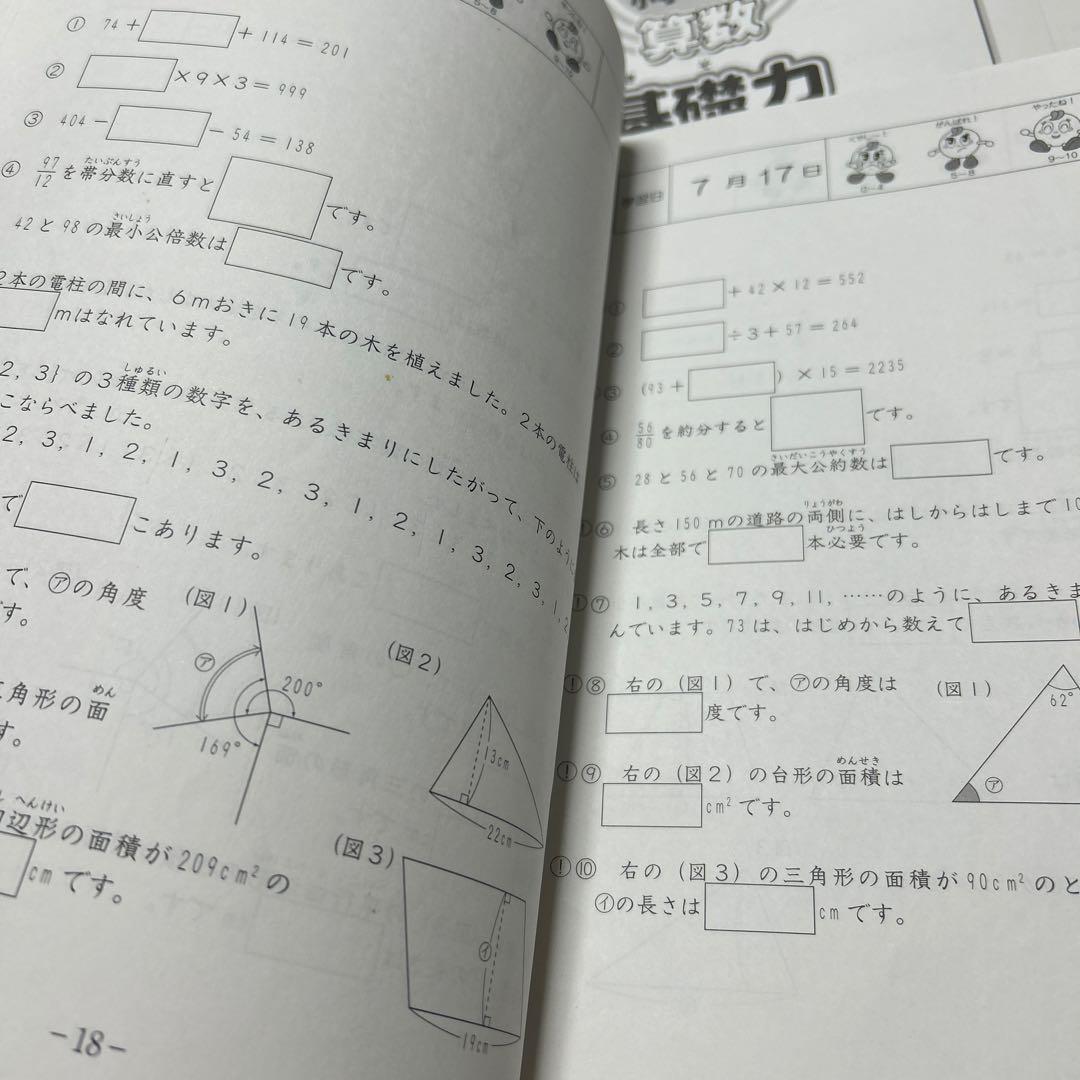 ① 74+ +114=201
② ×9×3=999
③ 404- -54=138
④ 97/12を帯分数に直すと です。
たいぶんすう
42と98の最小公倍数は です。
さいしょう
2本の電柱の間に、6mおきに19本の木を植えました。2本の電柱は
mはなれています。
2, 3}の3種類の数字を、あるきまりにしたがって、下のように
しゅるい
こならべました。
2, 3, 1, 2, 1, 3, 2, 3, 1, 2, 1, 3, 2, 3, 1, 2
で こあります。
で、㋐の角度
です。
(図1)
㋐
200°
169°
(図2)
13cm
22cm
角形の面
めん
す。
へんけい
辺形の面積が209cm²の
cmです。
(図3)
㋑
19cm
-18-
算数
基礎力
学習日
7月17日
0~4
がんばれ!
5~8
やったね!
9~10
① +42×12=552
② ÷3+57=264
③ (93+ )×15=2235
④ 56/80を約分すると です。
⑤ 28と56と70の最大公約数は です。
さいだいこうやくすう
⑥ 長さ150mの道路の両側に、はしからはしまで10
りょうがわ
木は全部で 本必要です。
ひつよう
!⑦ 1, 3, 5, 7, 9, 11, ……のように、あるきま
んでいます。73は、はじめから数えて
!⑧ 右の(図1)で、㋐の角度は
度です。
(図1)
62°
㋐
!⑨ 右の(図2)の台形の面積は
めんせき
cm²です。
!⑩ 右の(図3)の三角形の面積が90cm²のと
㋑の長さは cmです。